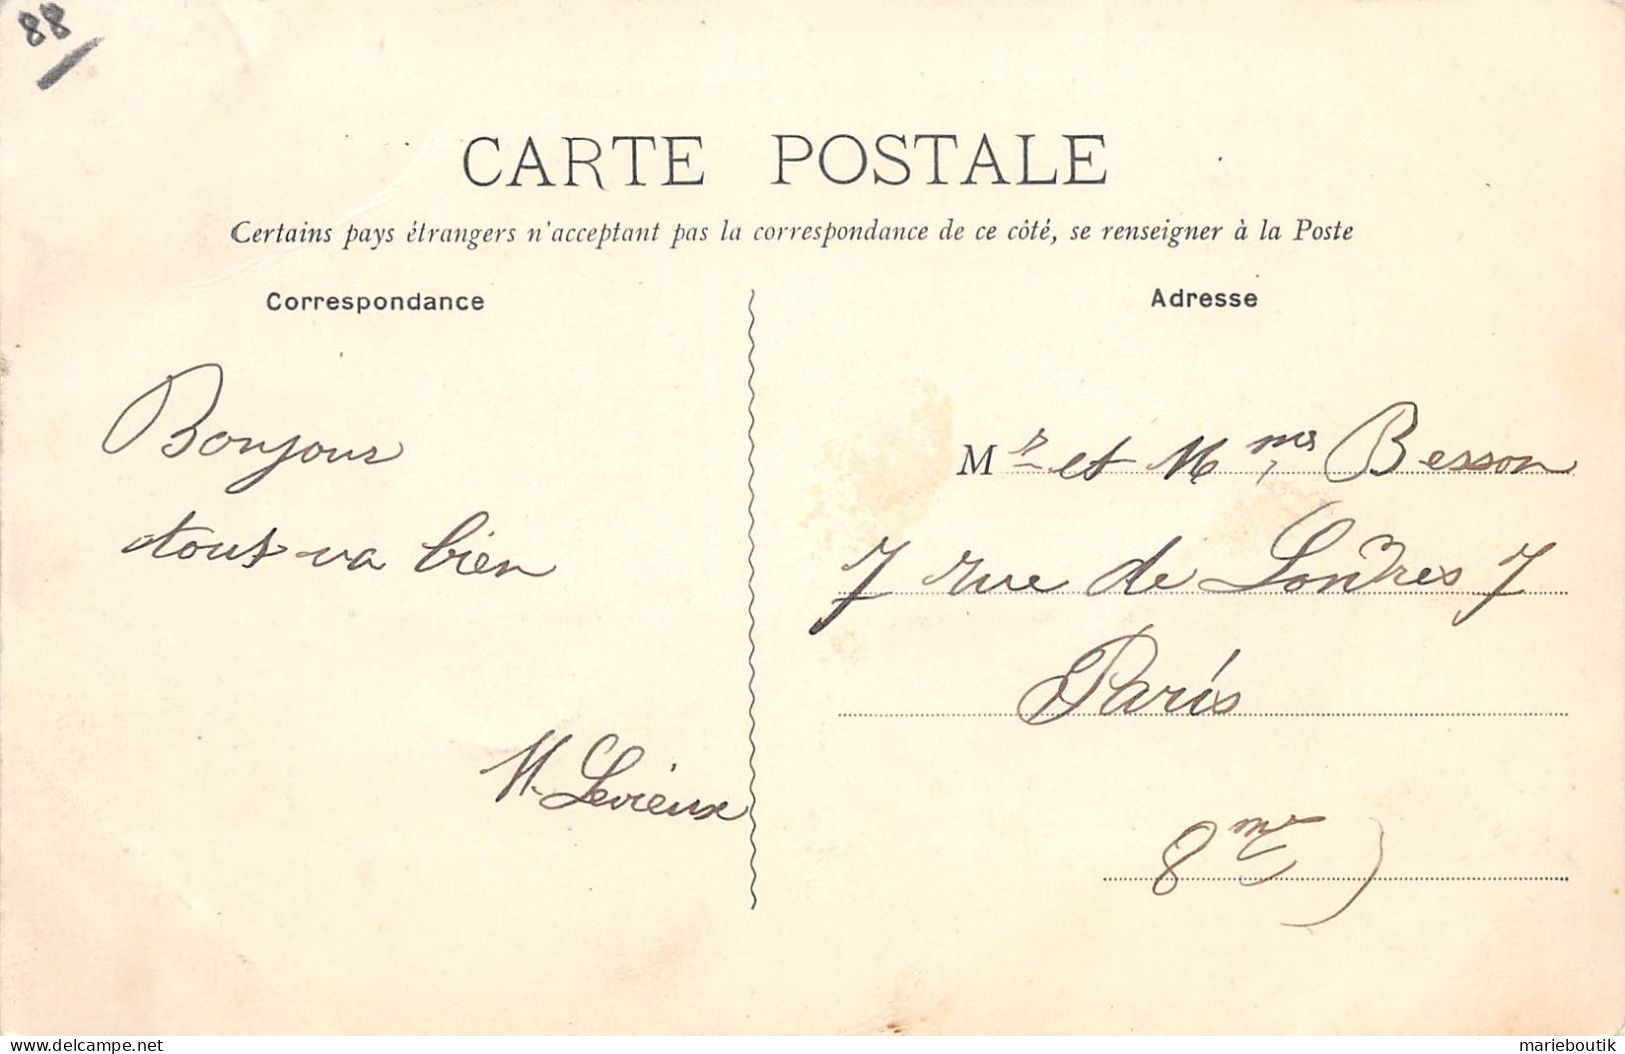 88
CARTE POSTALE
Certains pays étrangers n'acceptant pas la correspondance de ce côté, se renseigner à la Poste
Correspondance
Bonjour
tout va bien
M. Levieux
Adresse
Mr et Mme Besson
7 rue de Londres 7
Paris
8me)
delcampe.net
marieboutik